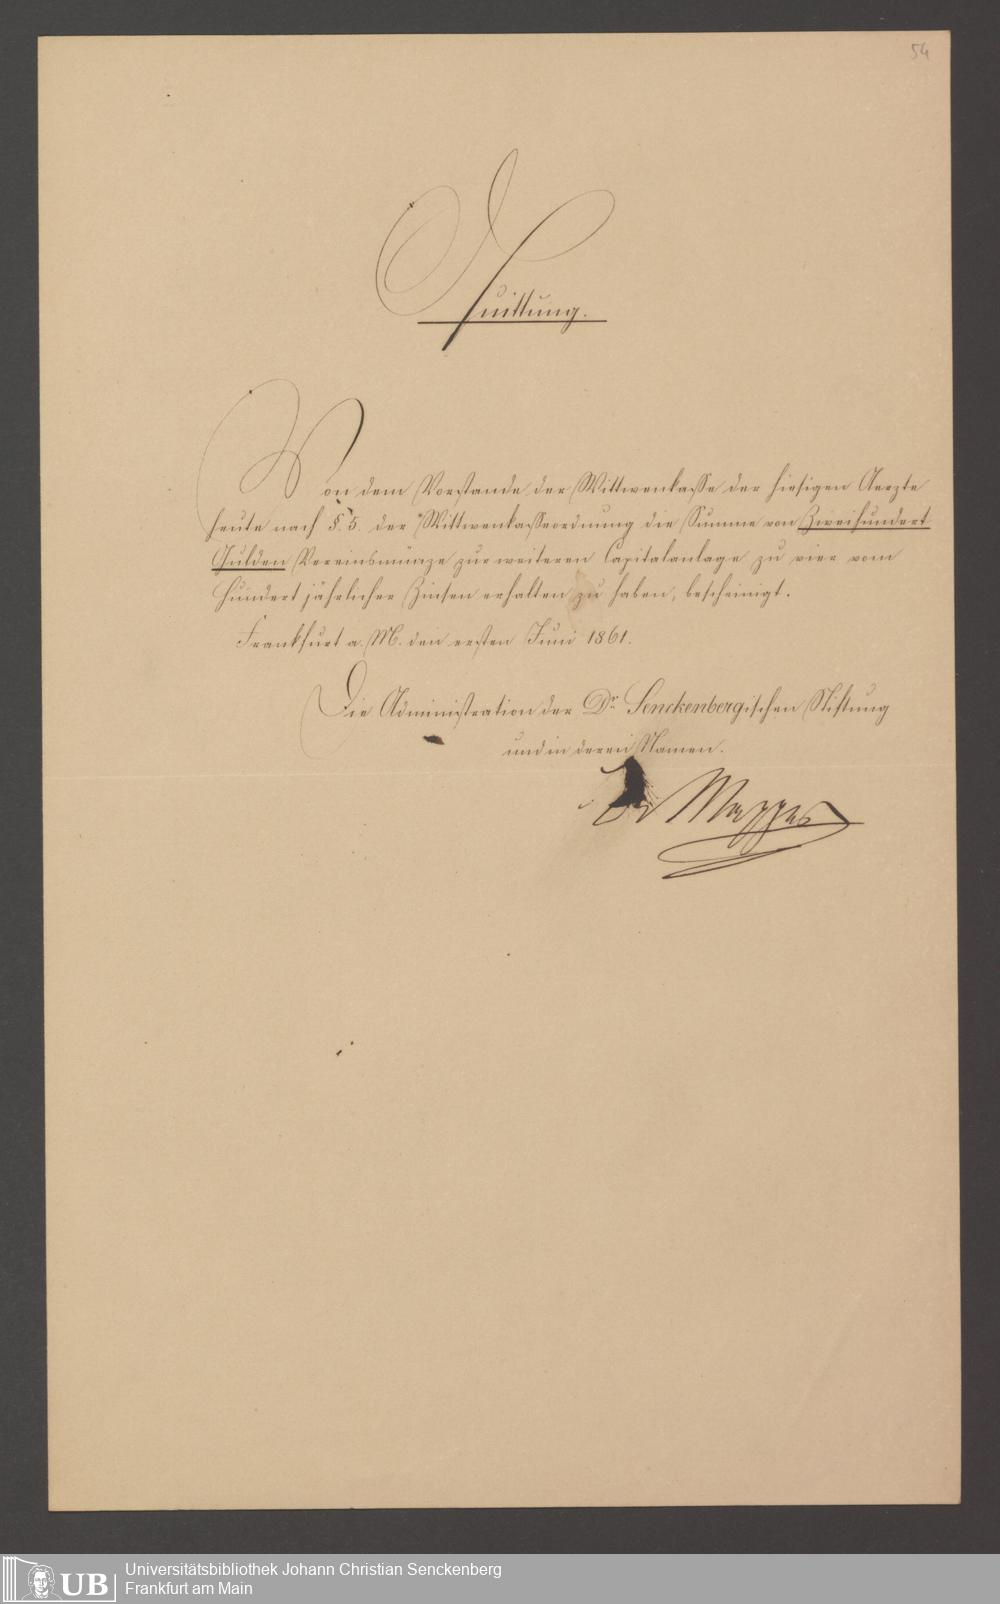 54
Quittung.
Von dem Vorstande der Wittwenkasse der hiesigen Aerzte
heute nach §. 5. der Wittwenkasseordnung die Summe von Zweihundert
Gulden Vereinsmünze zur weiteren Capitalanlage zu vier vom
Hundert jährlicher Zinsen erhalten zu haben, bescheinigt.
Frankfurt a. M. den ersten Juni 1861.
Die Administration der Dr. Senckenbergischen Stiftung
und in deren Namen.
Dr Mappes
Universitätsbibliothek Johann Christian Senckenberg
Frankfurt am Main
UB